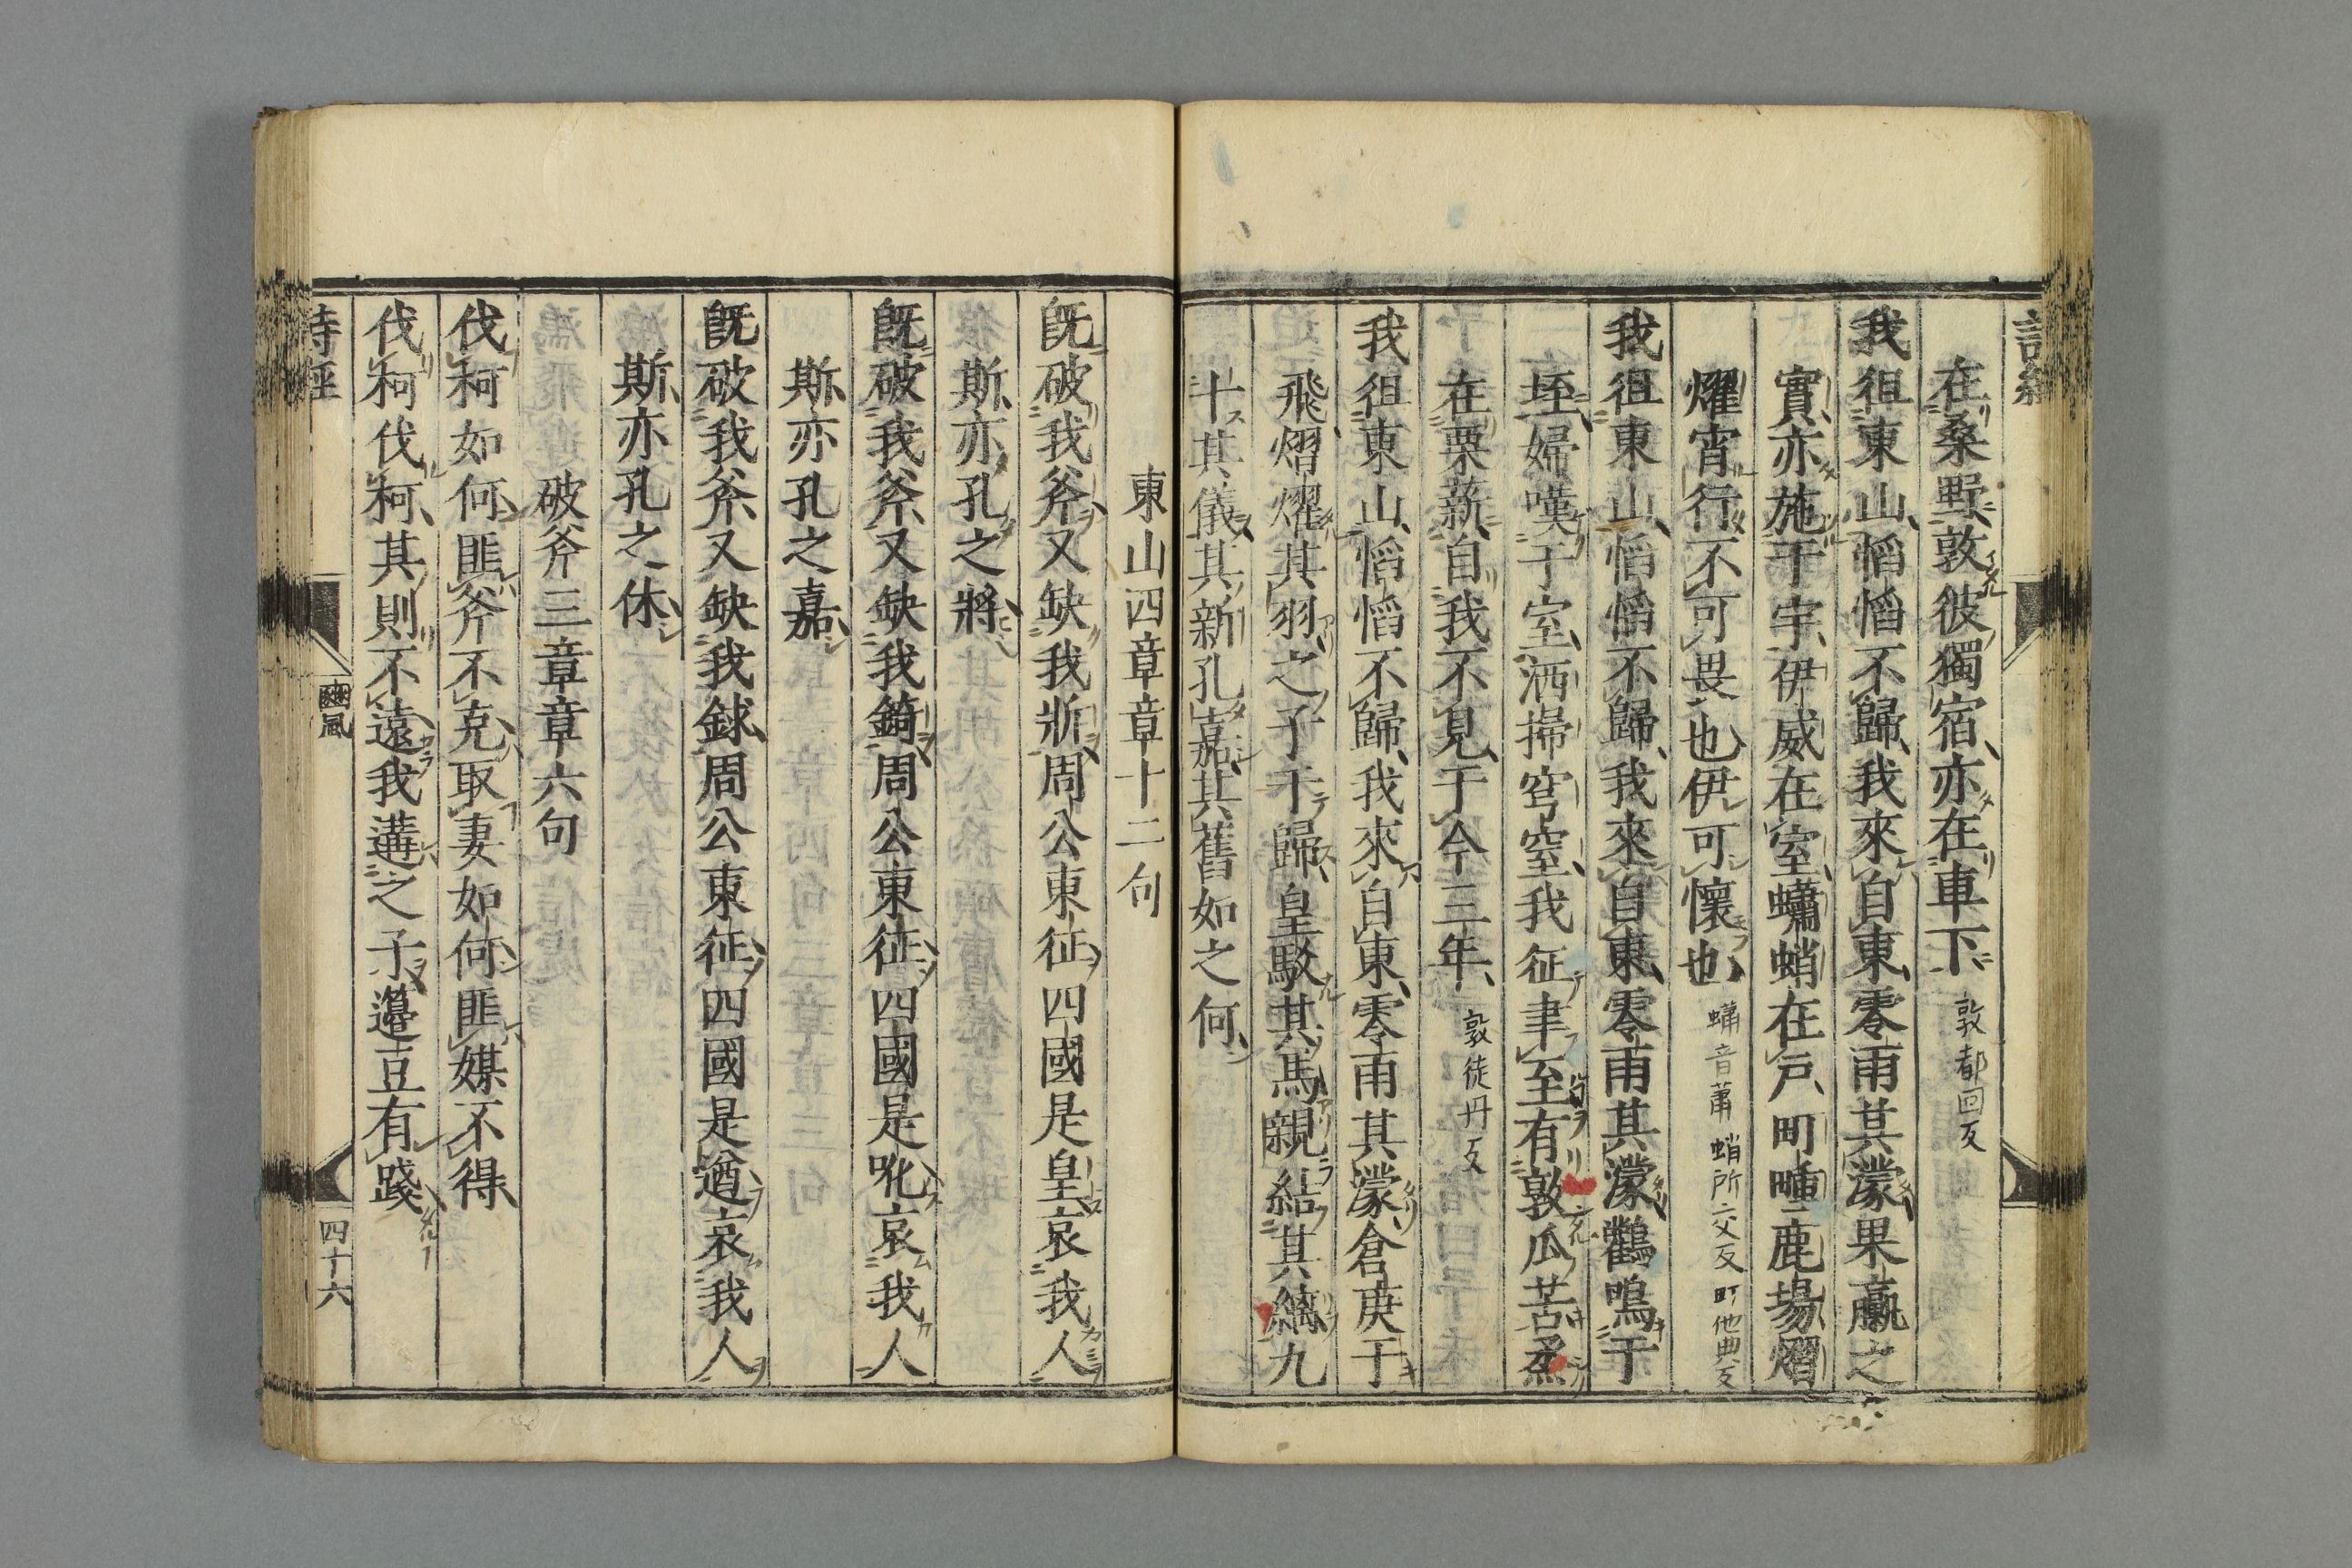 詩經
在桑野敦彼獨宿亦在車下 敦都回反
我徂東山慆慆不歸我來自東零雨其濛果臝之
實亦施于宇伊威在室蠨蛸在戶町畽鹿場熠
燿宵行不可畏也伊可懷也 蠨音蕭蛸所交反町他典反
我徂東山慆慆不歸我來自東零雨其濛鸛鳴于
垤婦嘆于室洒掃穹窒我征聿至有敦瓜苦烝
在栗薪自我不見于今三年 敦徒丹反
我徂東山慆慆不歸我來自東零雨其濛倉庚于
飛熠燿其羽之子于歸皇駁其馬親結其縭九
十其儀其新孔嘉其舊如之何
東山四章章十二句
既破我斧又缺我斨周公東征四國是皇哀我人
斯亦孔之將
既破我斧又缺我錡周公東征四國是吪哀我人
斯亦孔之嘉
既破我斧又缺我銶周公東征四國是遒哀我人
斯亦孔之休
破斧三章章六句
伐柯如何匪斧不克取妻如何匪媒不得
伐柯伐柯其則不遠我遘之子籩豆有踐
詩經 豳風 四十六